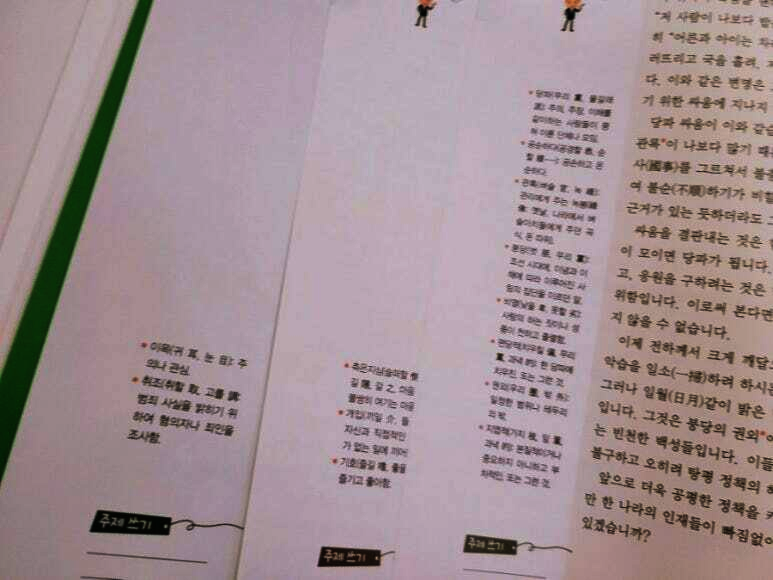 • 이목(귀 耳, 눈 目): 주
의나 관심.
• 취조(취할 取, 고를 調):
범죄 사실을 밝히기 위
하여 혐의자나 죄인을
조사함.
주제 쓰기
• 측은지심(슬퍼할 惻,
길 隱, 갈 之, 마음
불쌍히 여기는 마음
• 개입(끼일 介, 들
자신과 직접적인
가 없는 일에 끼어
• 기호(즐길 嗜, 좋을
즐기고 좋아함.
주제 쓰기
• 당파(무리 黨, 물갈래
派): 주의, 주장, 이해를
같이하는 사람들이 뭉
쳐 이룬 단체나 모임.
• 공손하다(공경할 恭, 순
할 遜--): 공손하고 온
순하다.
• 관록(벼슬 官, 녹 祿):
관리에게 주는 녹봉(祿
俸: 옛날, 나라에서 벼
슬아치들에게 주던 곡
식, 돈 따위).
• 붕당(벗 朋, 무리 黨):
조선 시대에, 이념과 이
해에 따라 이루어진 사
림의 집단을 이르던 말.
• 비열(낮을 卑, 못할 劣):
사람의 하는 짓이나 성
품이 천하고 졸렬함.
• 편당적(치우칠 偏, 무리
黨, 과녁 的): 한 당파에
치우친. 또는 그런 것.
• 권외(우리 圈, 밖 外):
일정한 범위나 테두리
의 밖.
• 지엽적(가지 枝, 잎 葉,
과녁 的): 본질적이거나
중요하지 아니하고 부
차적인. 또는 그런 것.
주제 쓰기
"저 사람이 나보다 밥
히 "어른과 아이는 차
러뜨리고 국을 흘려, 저
다. 이와 같은 변명은
기 위한 싸움에 지나지
당파 싸움이 이와 같습
관록•이 나보다 많기 때
사(國事)를 그르쳐서 불공
여 불순(不順)하기가 비할
근거가 있는 듯하더라도
싸움을 결판내는 것은
이 모이면 당파가 됩니다.
고, 응원을 구하려는 것은
위함입니다. 이로써 본다면
지 않을 수 없습니다.
이제 전하께서 크게 깨달
악습을 일소(一掃)하려 하시는
그러나 일월(日月)같이 밝은
입니다. 그것은 붕당의 권외•
는 빈천한 백성들입니다. 이들
불구하고 오히려 탕평 정책의 혜
앞으로 더욱 공평한 정책을
만 한 나라의 인재들이 빠짐없이
있겠습니까?